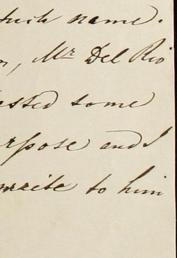 which name.
, Mr Del Rio
ested some
rpose and I
write to him